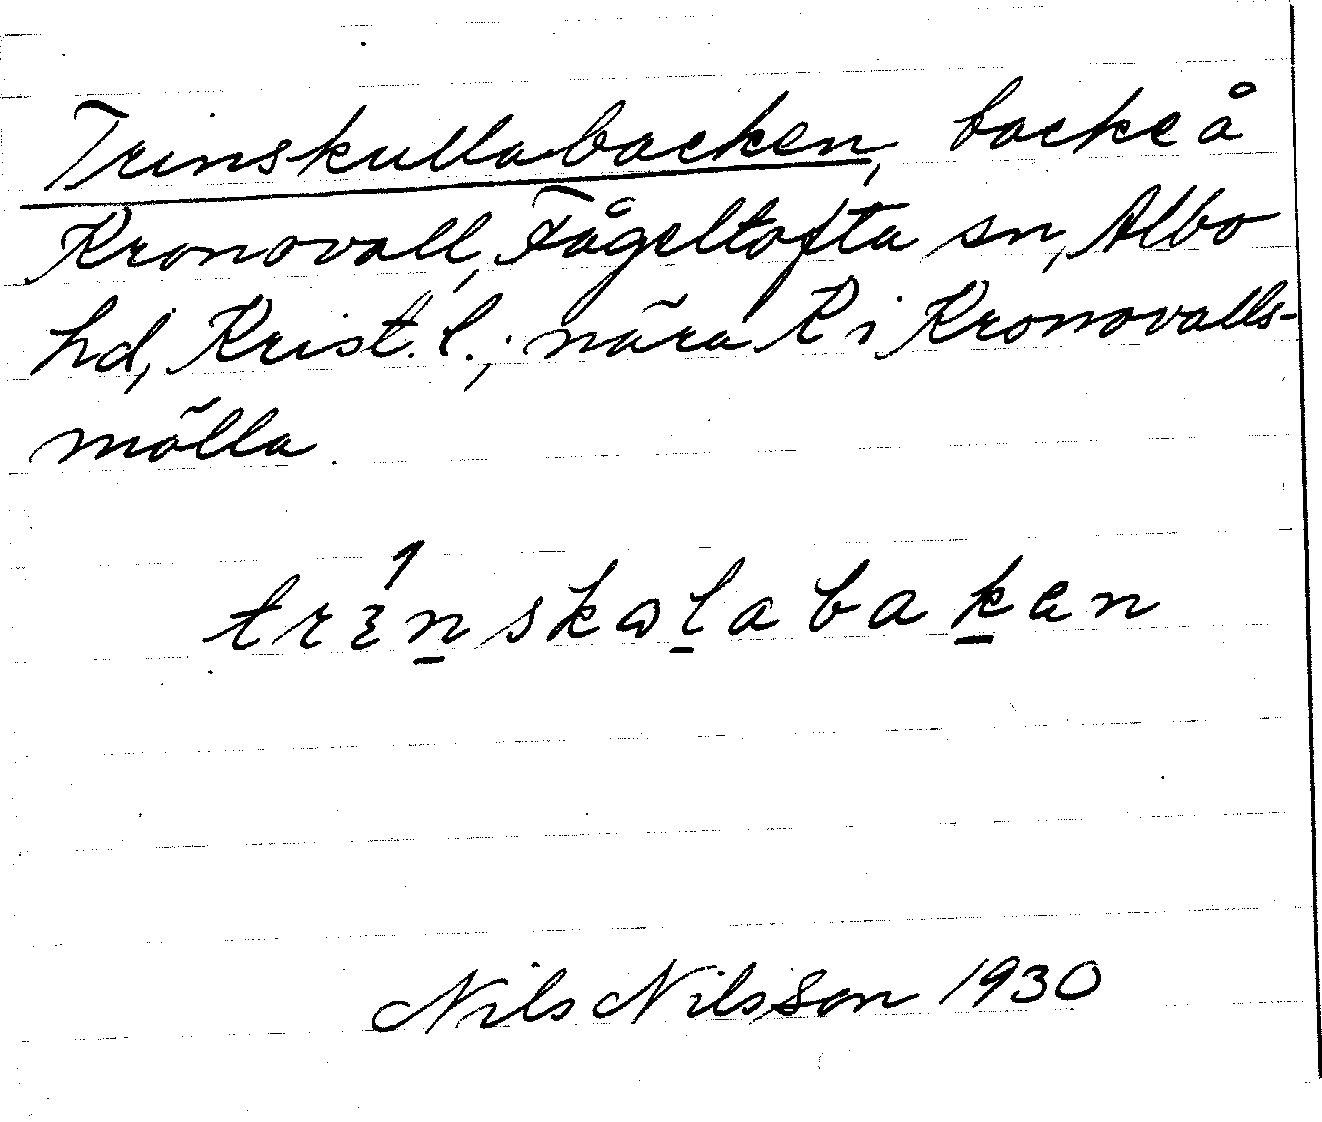 Trinskullabacken, backe å
Kronovall, Fågeltofta sn, Albo
hd, Krist. l.; nära R i Kronovalls-
mölla.
trɛ́n̠skɷl̠abak̠en
Nils Nilsson 1930